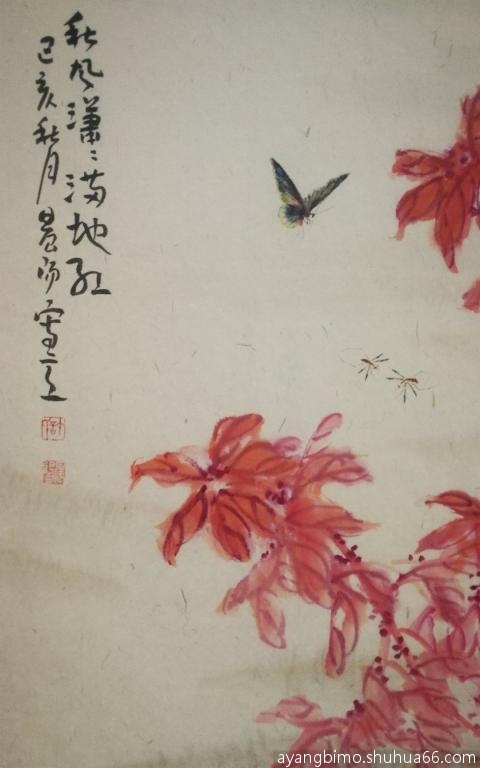 秋风潇潇满地红
己亥秋月
ayangbimo.shuhua66.com